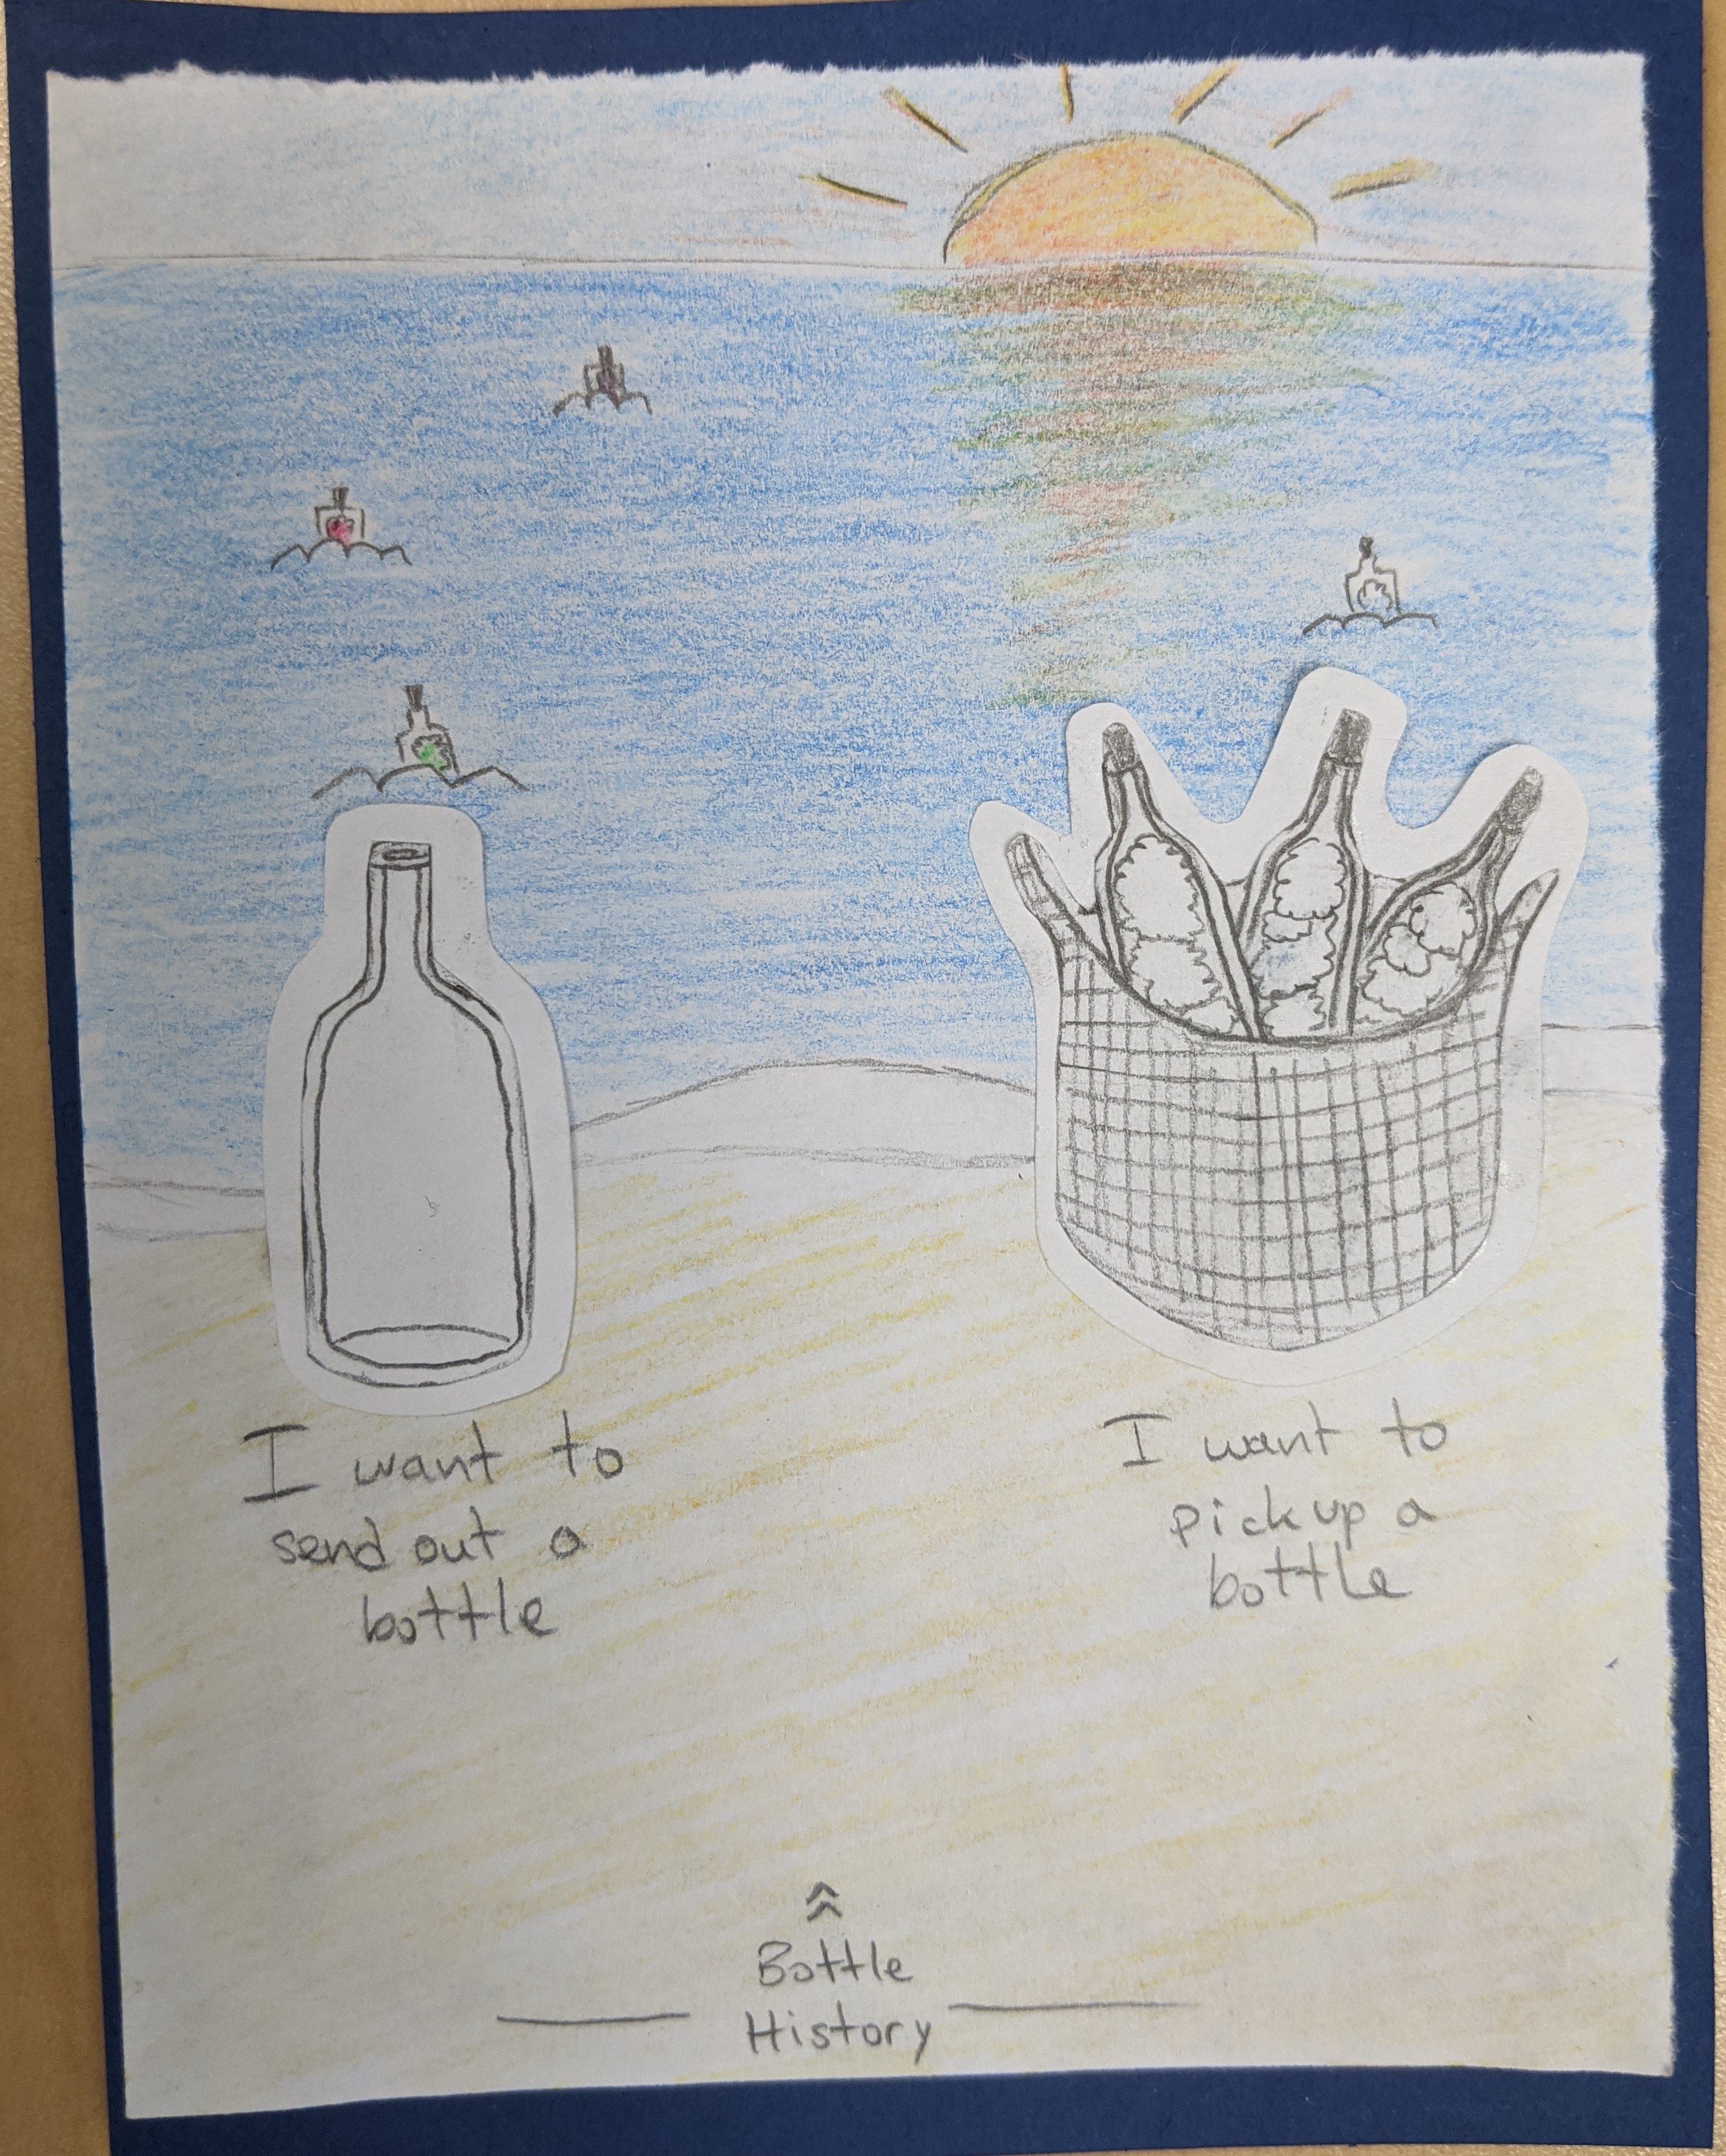 I want to
send out a
bottle
I want to
pick up a
bottle
Bottle
History